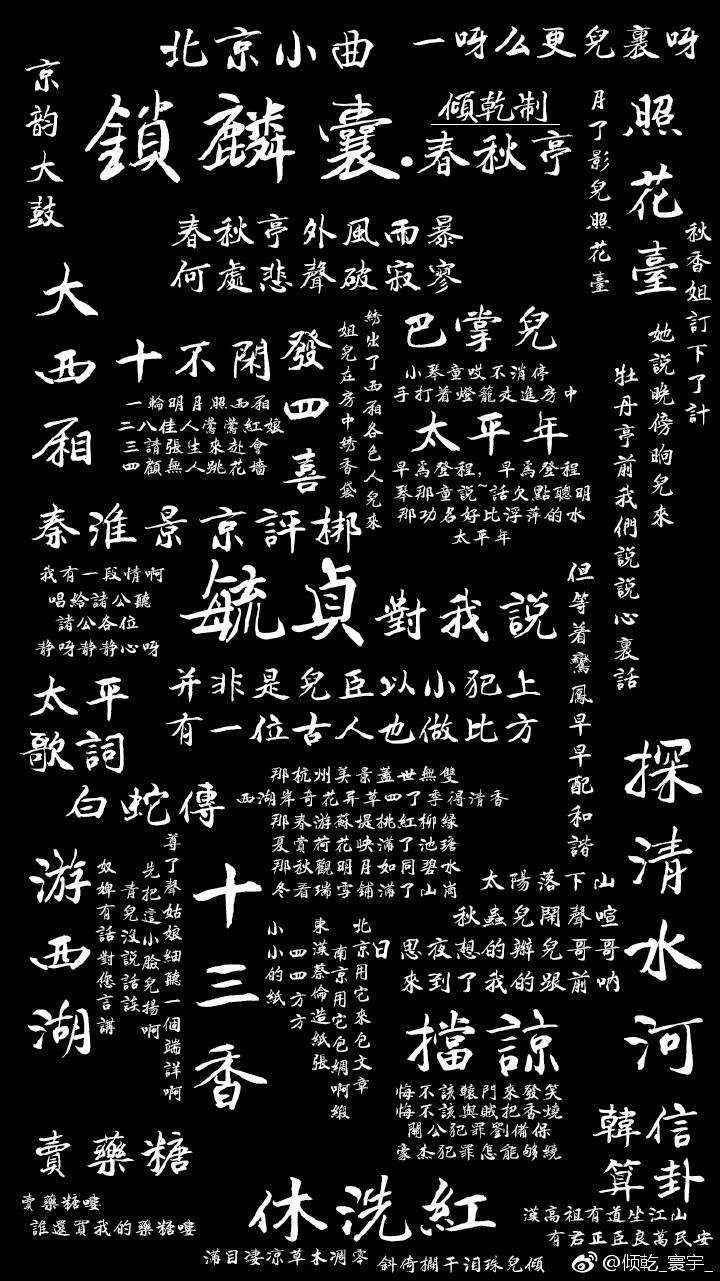 北京小曲
一呀么更兒裏呀
京韵大鼓
鎖麟囊·春秋亭
傾乾制
月了影兒照花臺
照花臺
春秋亭外風雨暴
何處悲聲破寂寥
秋香姐訂下了計
她說晚傍晌兒來
牡丹亭前我們説説心裏話
但等着鸞鳳早早配和諧
大西廂
十不閑
一輪明月照西廂
二八佳人鶯鶯紅娘
三請張生來赴會
四顧無人跳花墻
發四喜
綉出了西廂各色人兒來
姐兒在房中綉香袋
巴掌兒
小琴童哎不消停
手打着燈籠走進房中
太平年
早爲登程，早爲登程
琴那童説~話欠點聰明
那功名好比浮萍的水
太平年
秦淮景
京評梆
我有一段情啊
唱給諸公聽
諸公各位
静呀静静心呀
毓貞對我説
并非是兒臣以小犯上
有一位古人也做比方
太平歌詞
白蛇傳
那杭州美景蓋世無雙
西湖岸奇花异草四了季得清香
那春游蘇堤桃紅柳緑
夏賞荷花映滿了池塘
那秋觀明月如同碧水
冬看瑞雪鋪滿了山崗
游西湖
尊了聲姑娘細聽一個端詳啊
先把這小臉兒揚啊
青兒没説話談
奴婢有話對您言講
十三香
小小的紙
四四方方
東漢蔡倫造紙張
南京用它包綢啊緞
北京用它來包文章
探清水河
太陽落下山
秋蟲兒鬧聲喧
日思夜想的辦兒哥哥
來到了我的跟前呐
擋諒
悔不該轅門來發笑
悔不該與賊把香燒
關公犯罪劉備保
豪杰犯罪怎能够繞
韓信算卦
漢高祖有道坐江山
有君正臣良萬民安
賣藥糖
賣藥糖嘍
誰還買我的藥糖嘍
休洗紅
滿目凄凉草木凋零
斜倚攔干泪珠兒傾
@倾乾_寰宇_